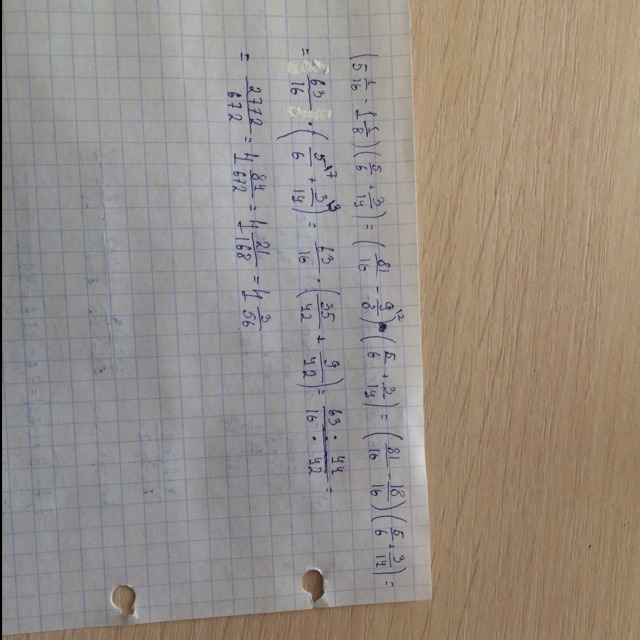 (5 1/16 - 1 1/8)(5/6 + 3/14) = (81/16 - 9/8^2) · (5/6 + 3/14) = (81/16 - 18/16)(5/6 + 3/14) =
= 63/16 · (5/6^7 + 3/14^3) = 63/16 · (35/42 + 9/42) = 63 · 44/16 · 42 =
= 2772/672 = 4 84/672 = 4 21/168 = 4 3/56